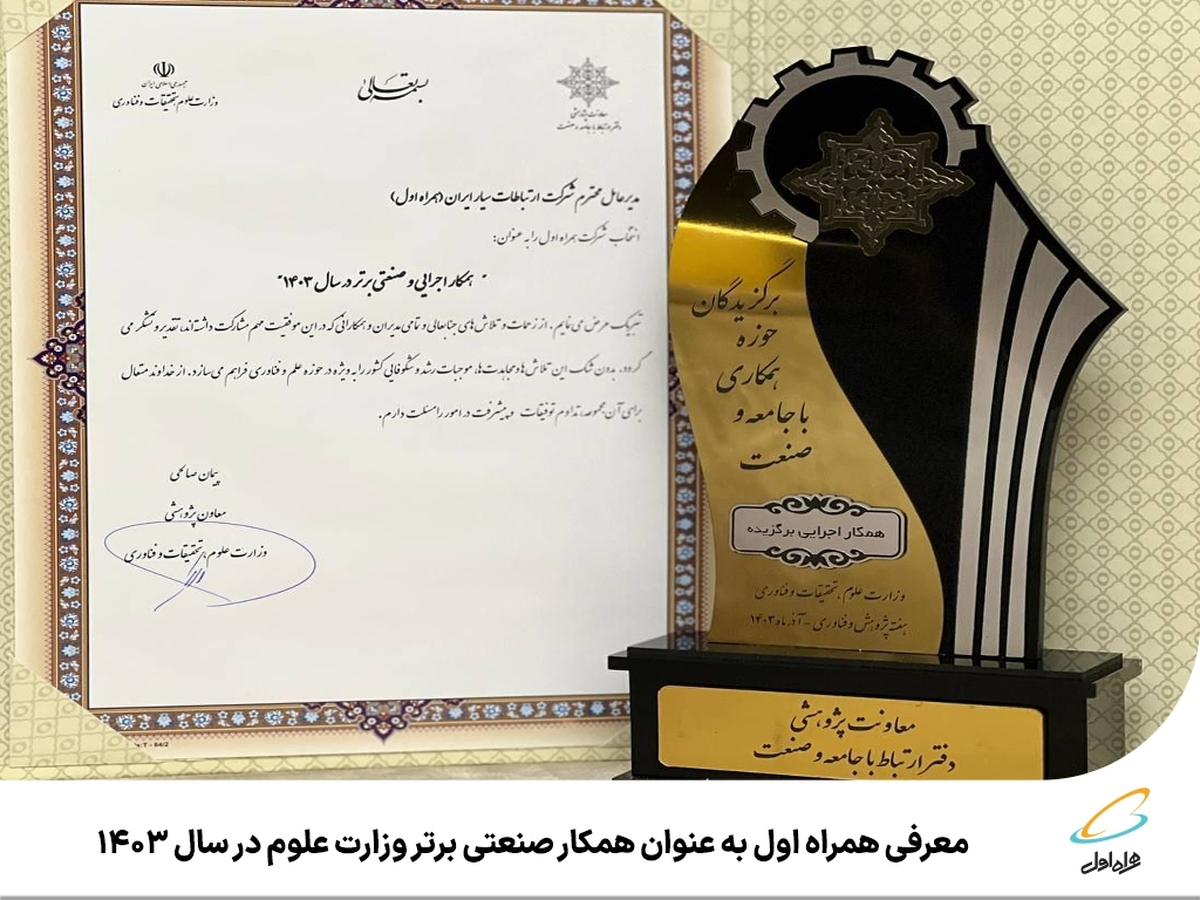 جمهوری اسلامی ایران
وزارت علوم، تحقیقات و فناوری
بسمه تعالی
معاونت پژوهشی
دفتر ارتباط با جامعه و صنعت
مدیرعامل محترم شرکت ارتباطات سیار ایران (همراه اول)
انتخاب شرکت همراه اول را به عنوان:
"همکار اجرایی و صنعتی برتر در سال ۱۴۰۳"
تبریک عرض می نمایم. از زحمات و تلاش های جنابعالی و تمامی مدیران و همکارانی که در این موفقیت مهم مشارکت داشته اند، تقدیر و تشکر می
گردد. بدون شک این تلاش ها و مجاهدت ها، موجبات رشد و شکوفایی کشور را به ویژه در حوزه علم و فناوری فراهم می سازد. از خداوند متعال
برای آن مجموعه، تداوم توفیقات و پیشرفت در امور را مسئلت دارم.
پیمان صالحی
معاون پژوهشی
وزارت علوم، تحقیقات و فناوری
برگزیدگان
حوزه
همکاری
با جامعه و
صنعت
همکار اجرایی برگزیده
وزارت علوم، تحقیقات و فناوری
هفته پژوهش و فناوری - آذر ماه ۱۴۰۳
معاونت پژوهشی
دفتر ارتباط با جامعه و صنعت
معرفی همراه اول به عنوان همکار صنعتی برتر وزارت علوم در سال ۱۴۰۳
همراه اول